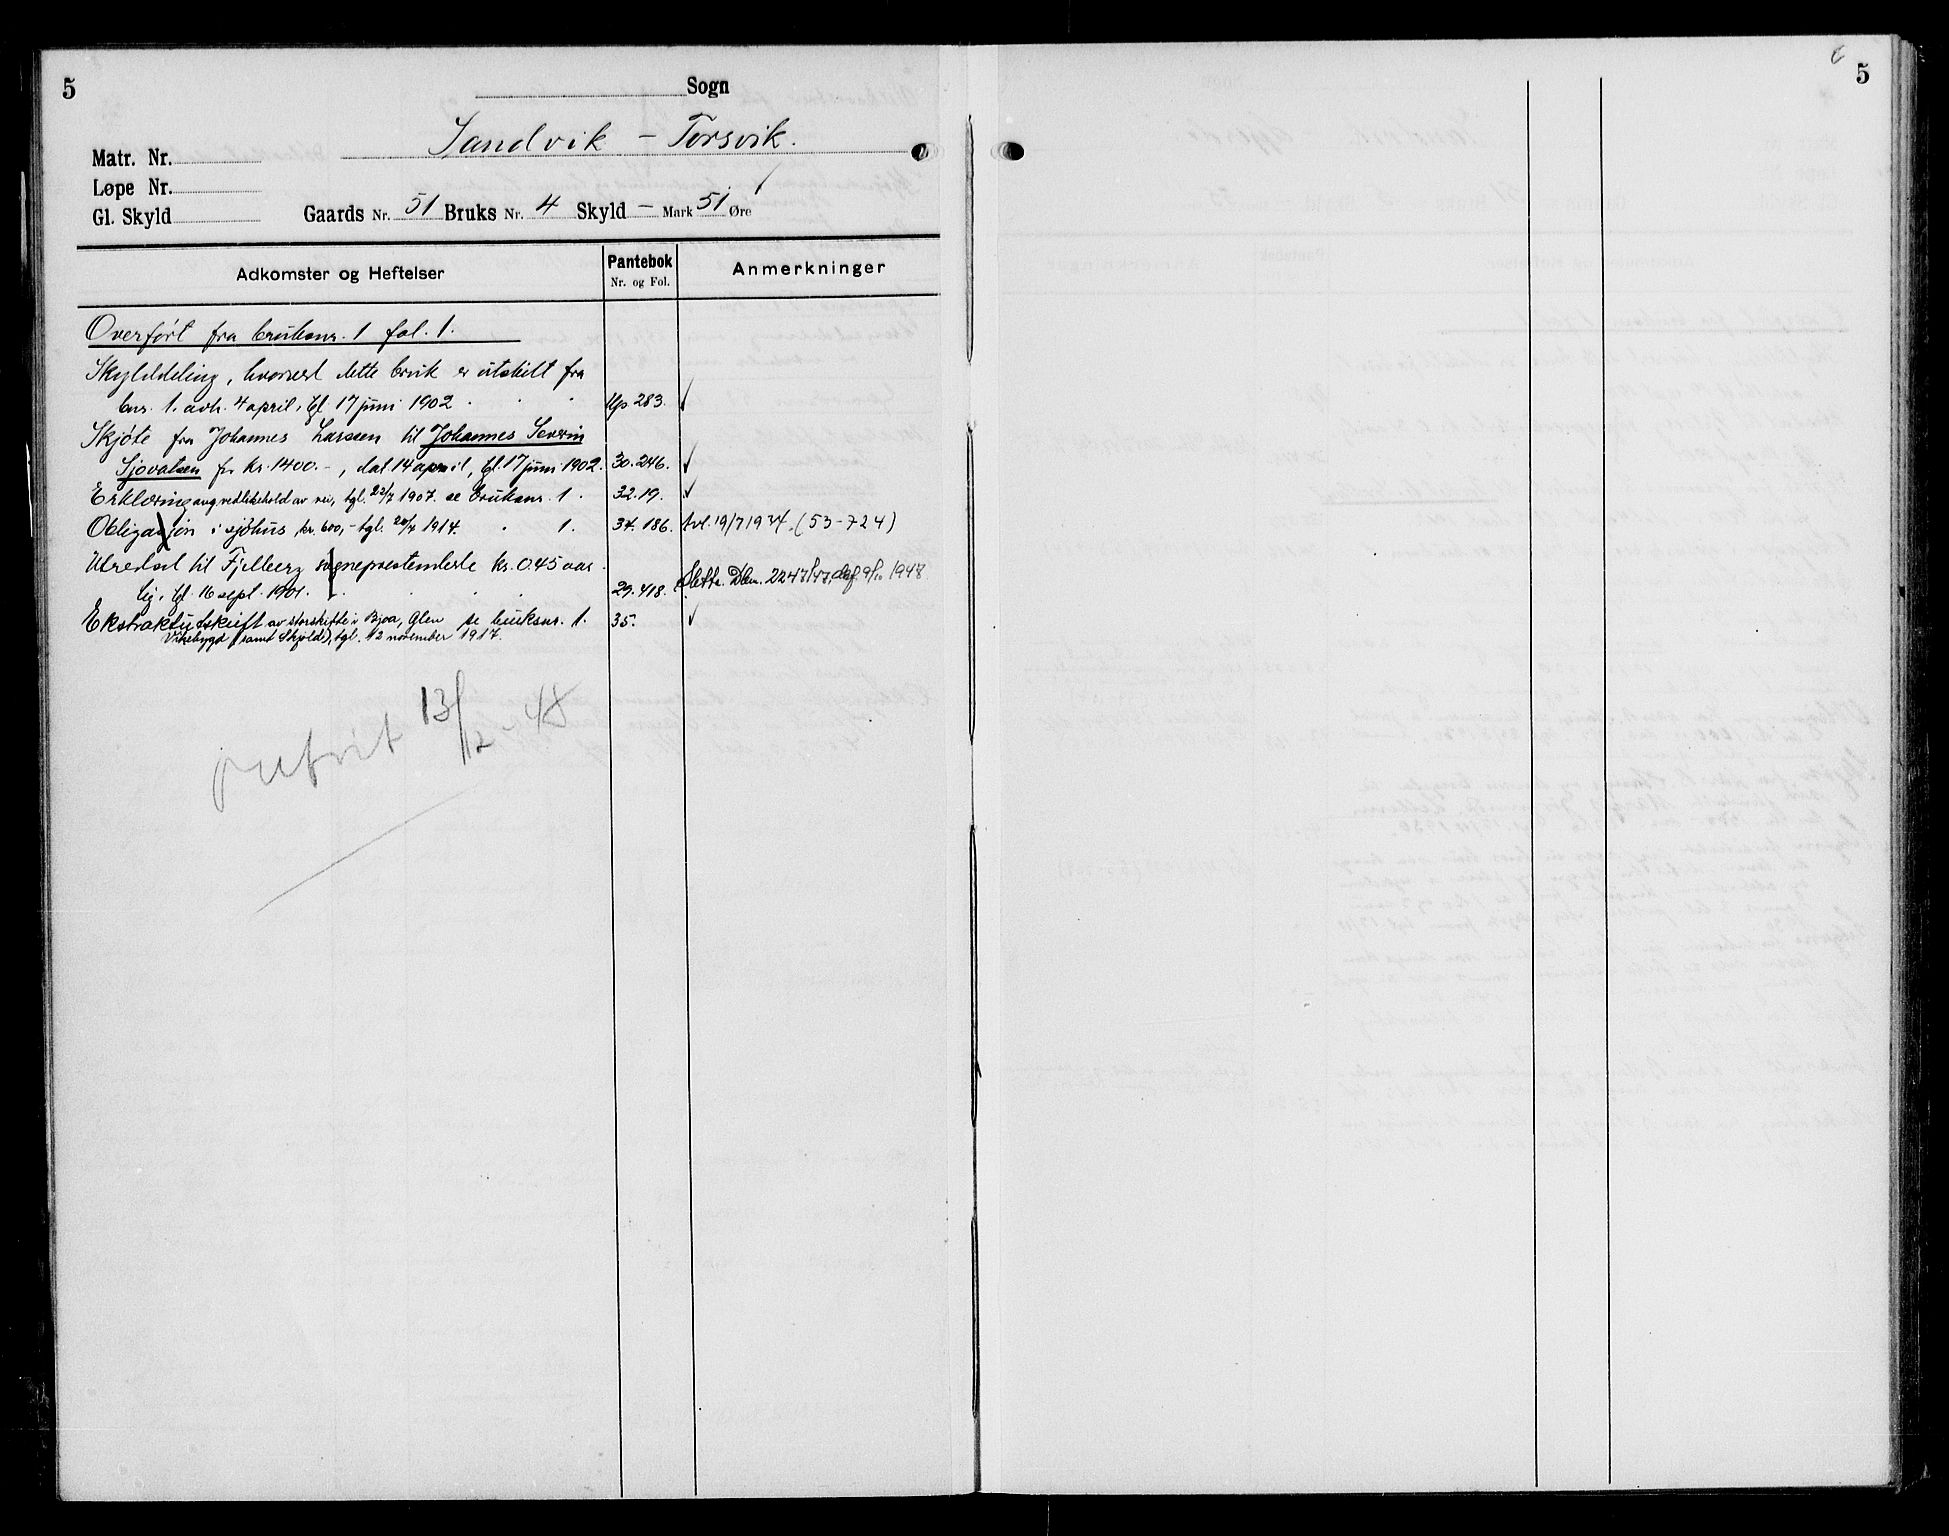 5
Sogn
Sandvik – Torsvik.
Matr. Nr.
Løpe Nr.
Gl. Skyld
Gaards Nr. 51 Bruks Nr. 4 Skyld – Mark 51 Øre
Adkomster og Heftelser
Pantebok
Nr. og Fol.
Anmerkninger
Overført fra bruksnr. 1 fol. 1.
Skylddeling, hvorved dette bruk er utskilt fra
bnr. 1. avh. 4 april, tgl. 17 juni 1902 283. ✓
Skjøte fra Johannes Larsen til Johannes Severin
Sjovatsen for kr. 1400.–, dat. 14 april, tgl. 17 juni 1902. 30. 246. ✓
Erklæring ang vedlikehold av vei, tgl. 22/7 1907. se bruksnr. 1. 32. 19. ✓
Obligasjon i sjøhus kr. 600,– tgl. 20/4 1914. " 1. 34. 186. Avl. 19/7 1934. (53-724)
Utredsel til Fjelberg sogneprestembede kr. 0.45 aar
lig, tgl. 16 sept. 1901. 29. 418. Slettet. Dbnr. 2247/47, def. 9/10 1947
Ekstraktutskrift av storskifte i Bjoa, Ølen se bruksnr. 1. 35. ✓
Vikebygd (samt Skjold), tgl. 12 november 1917.
13/12 - 48
6
5